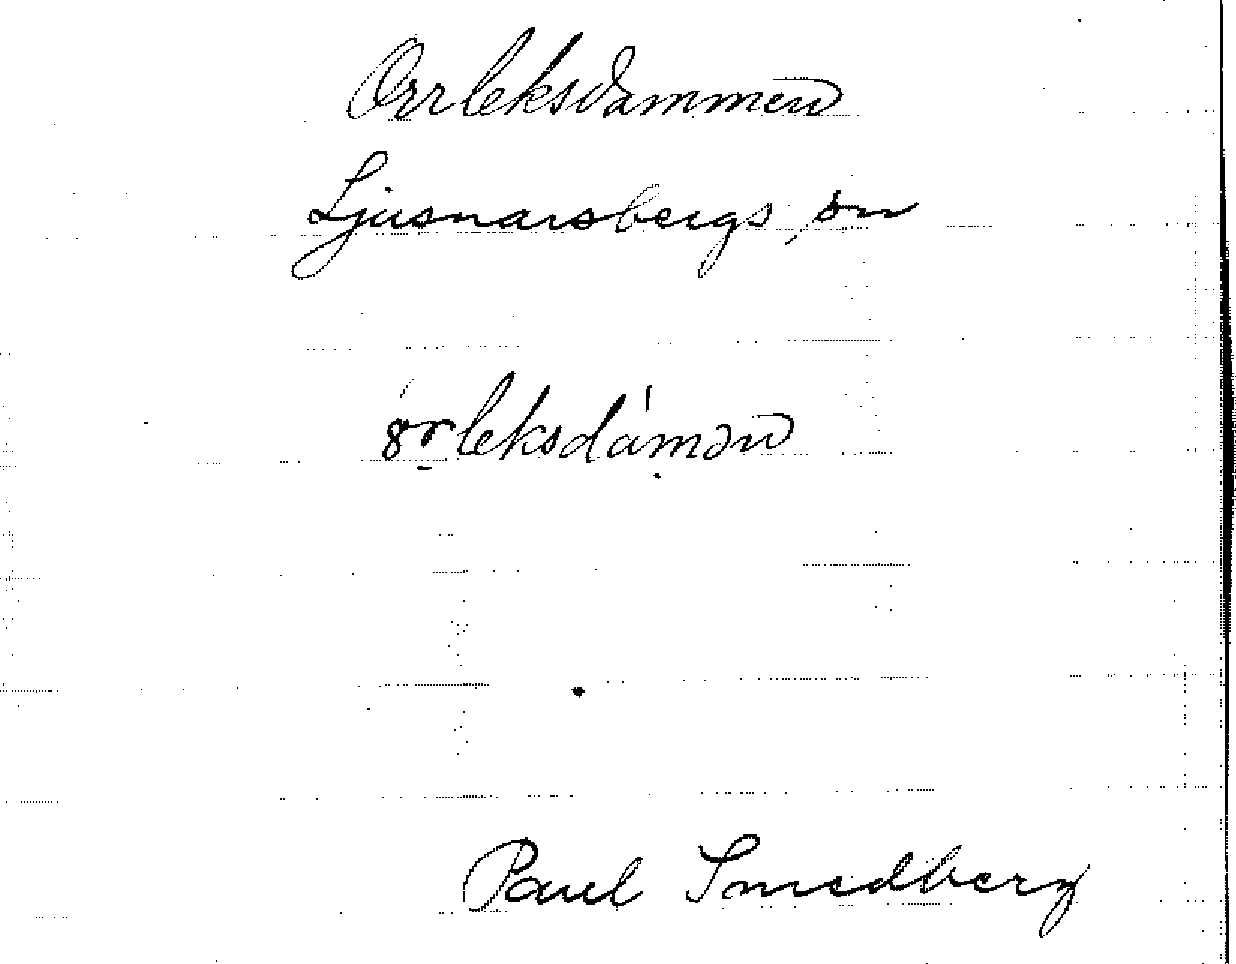 Orrleksdammen
Ljusnarsbergs sn
8rleksdámən
Paul Smedberg